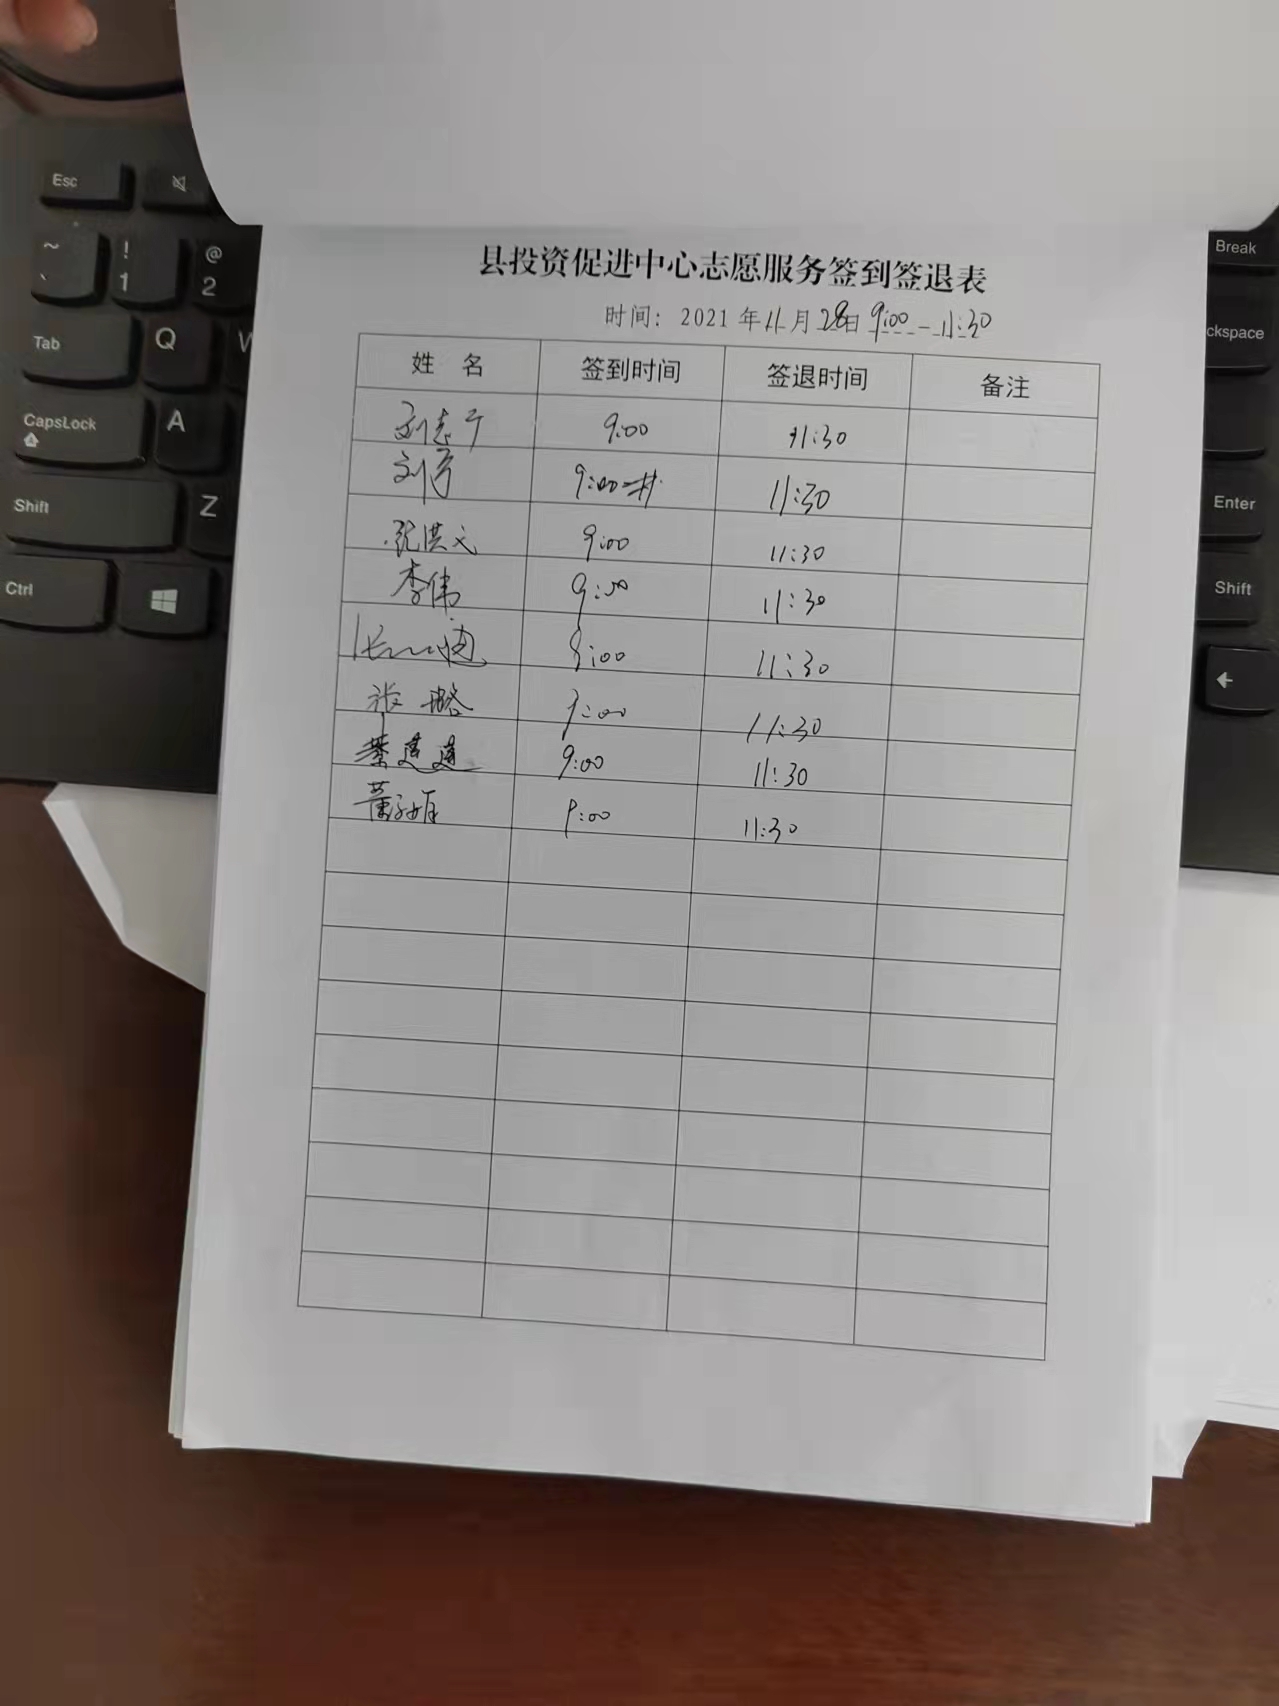 Esc
~
`
!
1
@
2
Tab
Q
W
CapsLock
A
Shift
Z
Ctrl
Break
ckspace
Enter
Shift
县投资促进中心志愿服务签到签退表
时间: 2021 年 11 月 28 日 9:00 - 11:30
姓 名 签到时间 签退时间 备注
刘志 9:00 11:30
刘 9:00 11:30
张洪文 9:00 11:30
李伟 9:00 11:30
9:00 11:30
张 9:00 11:30
蔡莲莲 9:00 11:30
董 9:00 11:30